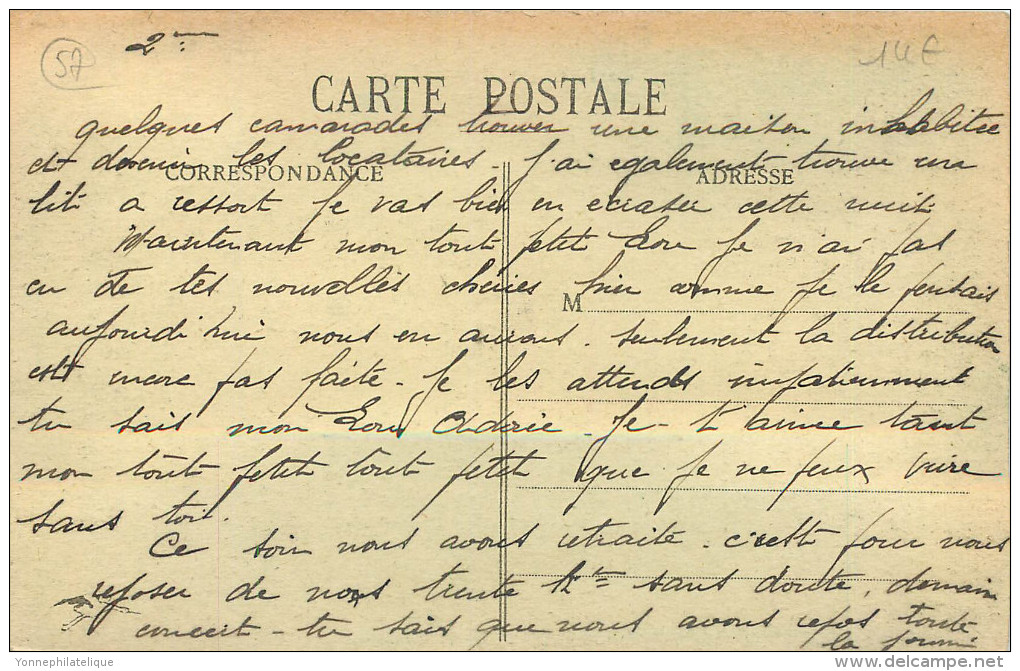 57
2me
14€
CARTE POSTALE
quelques camarades trouver une maison inhabitée
et devenir les locataires - J'ai egalement trouve un
CORRESPONDANCE
ADRESSE
lit a ressort je vas bien en ecraser cette nuit
Maintenant mon tout petit Lou je n'ai pas
eu de tes nouvelles chéries hier comme je le pensais
M
aujourdi hui nous en aurons. seulement la distribution
est encore pas faite - je les attends impatiemment
tu sais mon Lou Adorie - Je - t aimee tant
mon tout petit tout petit que je ne peux vivre
sans toi.
Ce soir nous avons retraite - c'estt pour nous
reposer de nos trente Km sans doute, demain
concert - tu sais que nous avons repos toute
la journé
Yonnephilatelique
delcampe.net